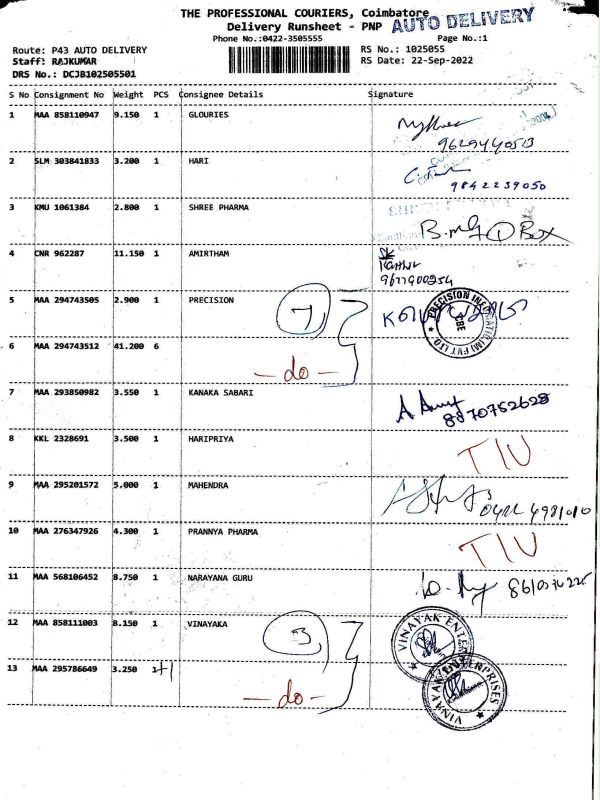 THE PROFESSIONAL COURIERS, Coimbatore
Delivery Runsheet - PNP AUTO DELIVERY
Phone No.:0422-3505555 Page No.:1
Route: P43 AUTO DELIVERY RS No.: 1025055
Staff: RAJKUMAR RS Date: 22-Sep-2022
DRS No.: DCJB102505501
S No Consignment No Weight PCS Consignee Details Signature
1 MAA 858110947 9.150 1 GLOURIES
2 SLM 303841833 3.200 1 HARI
9842239050
3 KMU 1061384 2.800 1 SHREE PHARMA
4 CNR 962287 11.150 1 AMIRTHAM
9677900254
5 MAA 294743505 2.900 1 PRECISION 7
6 MAA 294743512 41.200 6
- do -
7 MAA 293850982 3.550 1 KANAKA SABARI
8870752628
8 KKL 2328691 3.500 1 HARIPRIYA
TIU
9 MAA 295201572 5.000 1 MAHENDRA
0422 4981010
10 MAA 276347926 4.300 1 PRANNYA PHARMA
TIU
11 MAA 568106452 8.750 1 NARAYANA GURU
12 MAA 858111003 8.150 1 VINAYAKA 3
13 MAA 295786649 3.250 1+1
- do -
VINAYAK ENTERPRISES